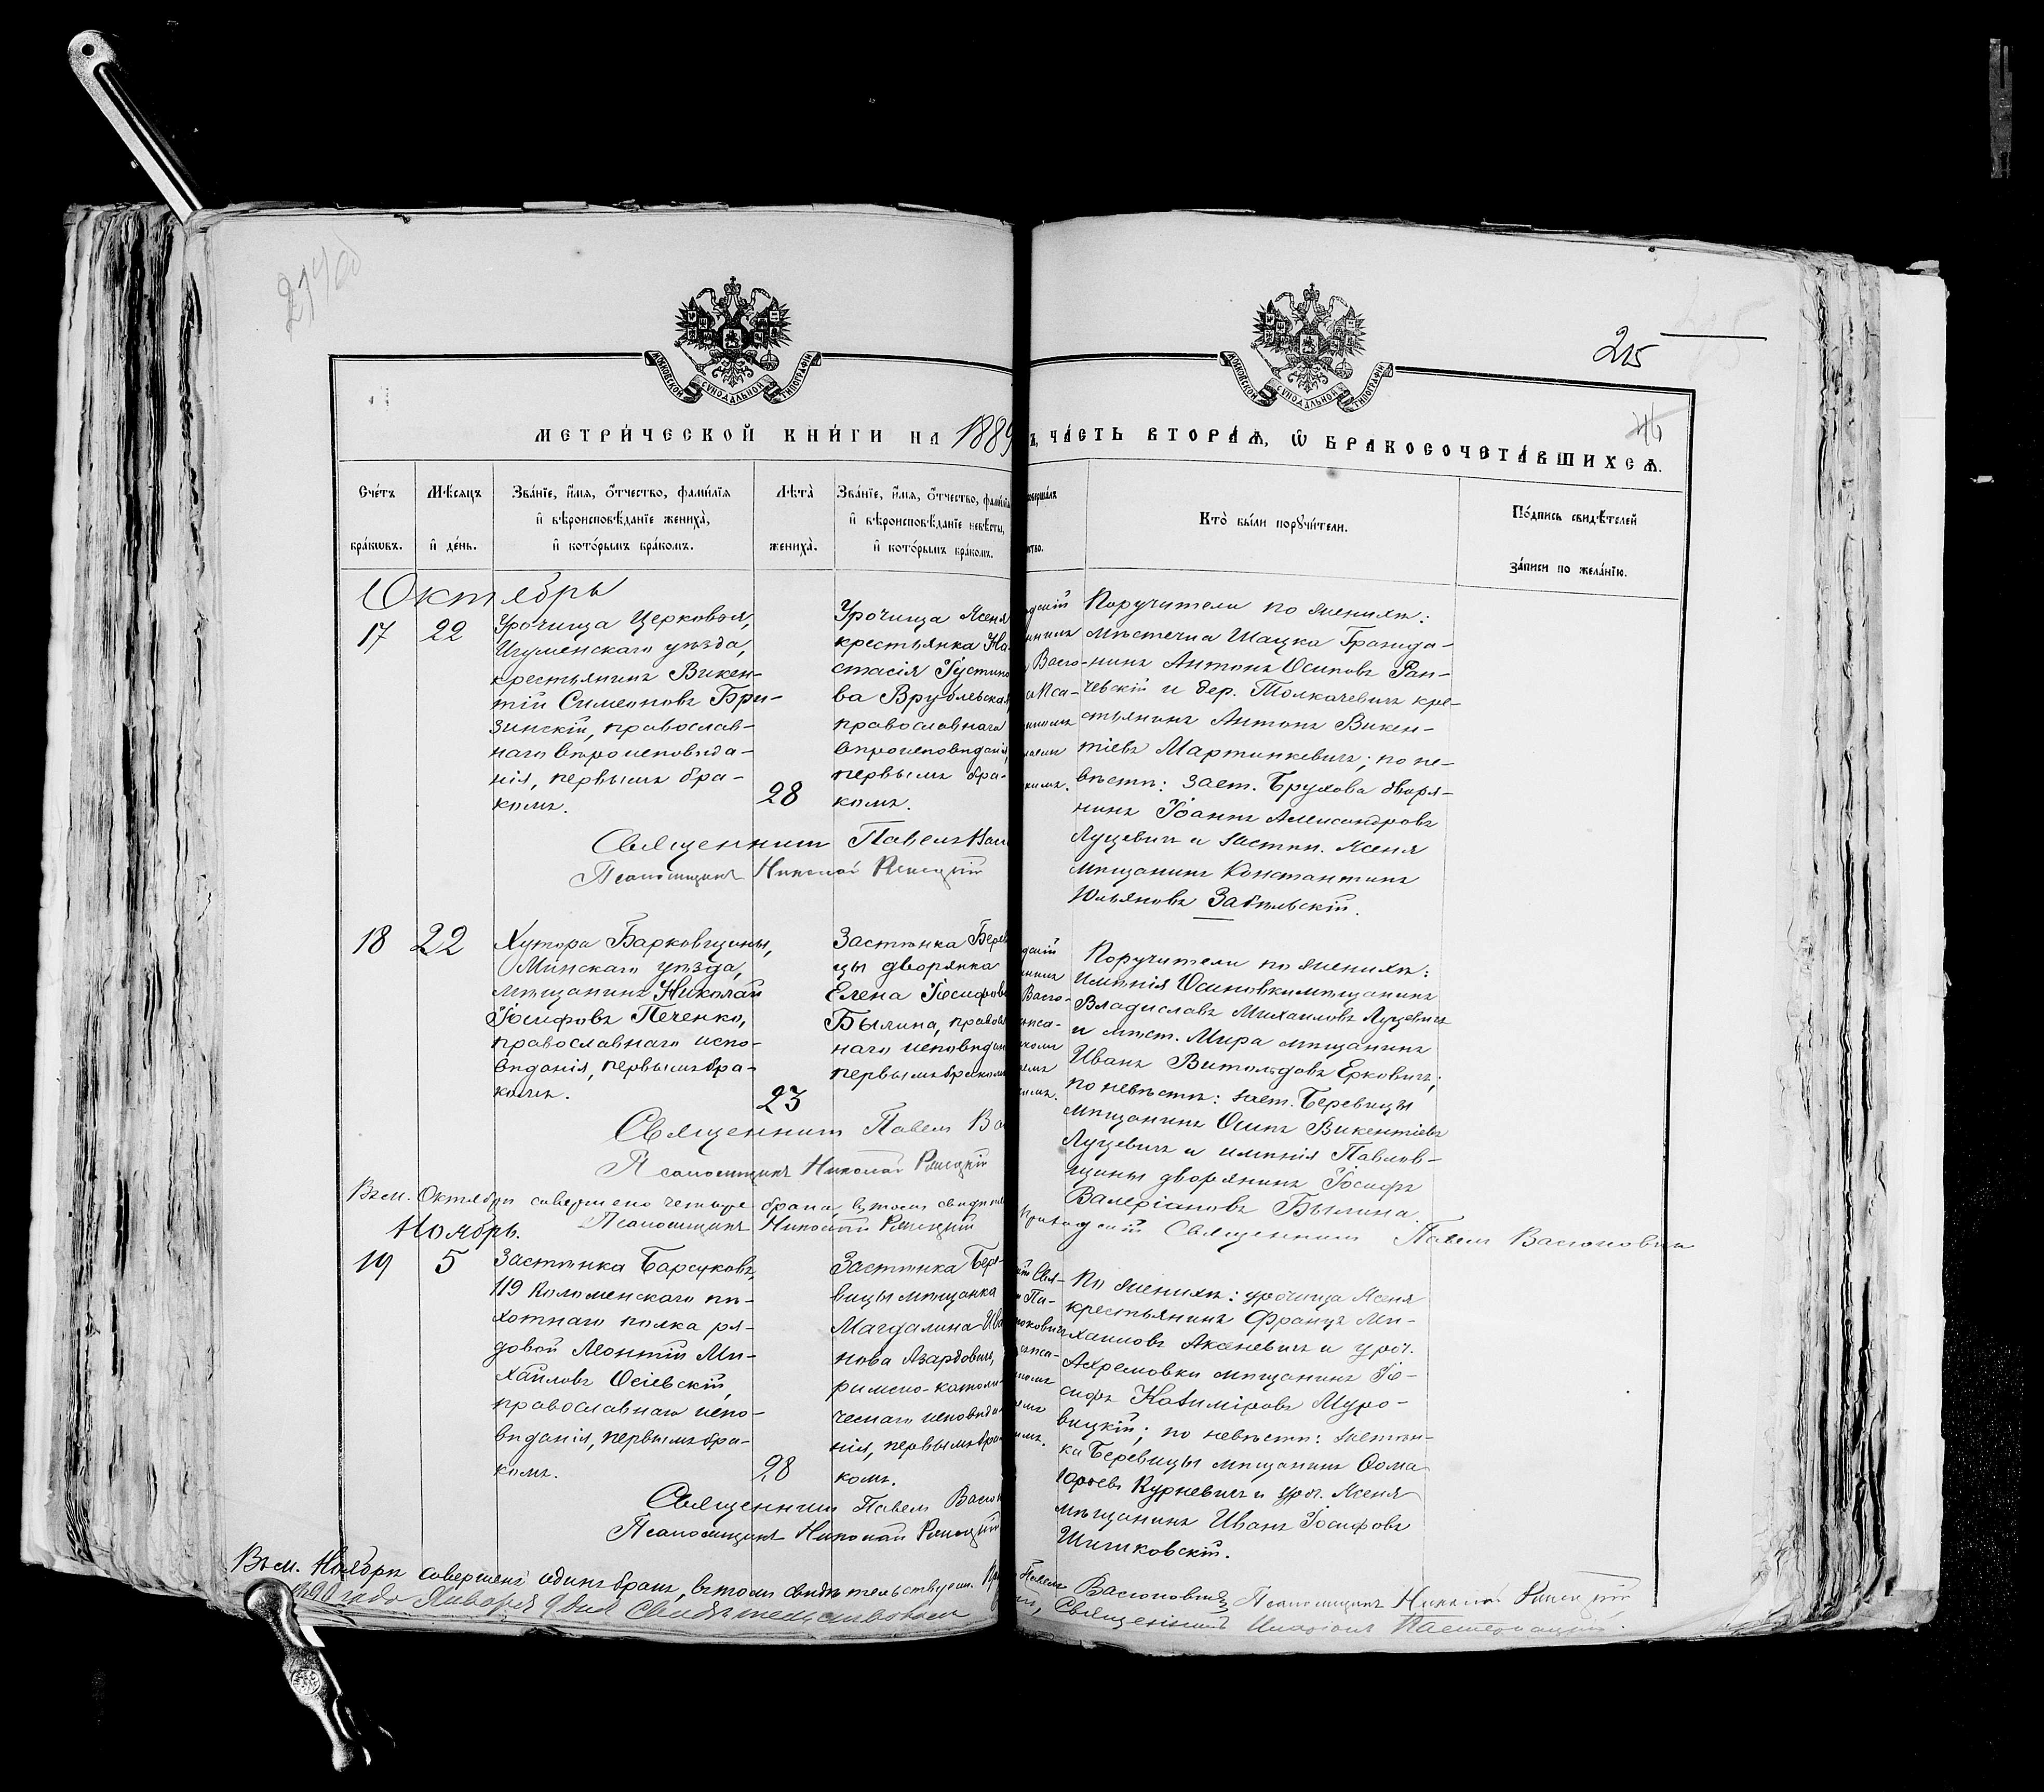 215
МОСКОВСКОЙ СУНОДАЛЬНОЙ ТИПОГРАФІИ
МОСКОВСКОЙ СУНОДАЛЬНОЙ ТИПОГРАФІИ
МЕТРИ́ЧЕСКОЙ КНИ́ГИ НА 1889
ЧА́СТЬ ВТОРА́Ѧ, Ѽ БРАКОСОЧЕТА́ВШИХСѦ.
Сче́тъ бра́кѡвъ.
Мѣ́сяцъ и҆ де́нь.
Зва́нїе, и҆́мя, ѻ҆́тчество, фами́лїя
и҆ вѣроисповѣ́данїе жениха̀,
и҆ кото́рымъ бра́комъ.
Лѣта̀ жениха̀.
Зва́нїе, и҆́мя, ѻ҆́тчество, фами́лїя
и҆ вѣроисповѣ́данїе невѣ́сты,
и҆ кото́рымъ бра́комъ.
Кто̀ бы́ли порꙋчи́тели.
По́дпись свидѣ́телей
за́писи по жела́нїю.
Октябрь
17 22
Урочища Церковья,
Игуменскаго уѣзда,
крестьянинъ Викен-
тій Симеоновъ Бри-
зинскій, православ-
наго вѣроисповѣда-
нія, первымъ бра-
комъ.
28
Урочища Ясеня
крестьянка На
стасія Іустино
ва Врублевская
православнаго
вѣроисповѣданія,
первымъ бра-
комъ.
Поручители по женихѣ:
мѣстечка Шацка Гражда-
нинъ Антонъ Осиповъ Ран-
чевскій и дер. Толкачевичъ кре-
стьянинъ Антонъ Викен-
тіевъ Мартинкевичъ; по не-
вѣстѣ: заст. Брухова дворя-
нинъ Іоаннъ Александровъ
Луцевичъ и застѣн. Ясеня
мѣщанинъ Константинъ
Юльяновъ Забѣльскій.
Священникъ Павелъ
Псаломщикъ Николай
18 22
Хутора Барковщины,
Минскаго уѣзда,
мѣщанинъ Николай
Іосифовъ Печенко,
православнаго испо-
вѣданія, первымъ бра-
комъ.
23
Застѣнка Берев
цы дворянка
Елена Іосифов
Былина, правос
наго исповѣдан
первымъ бракомъ
Поручители по женихѣ:
Имѣнія Осиновки мѣщанинъ
Владиславъ Михаиловъ Луцевичъ
и мѣст. Мира мѣщанинъ
Иванъ Витольдовъ Ерковичъ;
по невѣстѣ: заст. Беревицы
мѣщанинъ Осипъ Викентіевъ
Луцевичъ и имѣнія Павлов-
щины дворянинъ Іосифъ
Валеріановъ Былина.
Священникъ Павелъ
Псаломщикъ Николай
Въ м. Октябрѣ совершено четыре брака, въ томъ
Священникъ Павелъ Васюковичъ
Псаломщикъ Николай
Ноябрь.
19 5
Застѣнка Барсуковъ,
119 Коломенскаго пѣ-
хотнаго полка ря-
довой Леонтій Ми-
хайловъ Осіевскій,
православнаго испо-
вѣданія, первымъ бра-
комъ.
28
Застѣнка Бере-
вицы мѣщанка
Магдалина Ива
нова Азардовичъ,
римско-католи-
ческаго исповѣда
нія, первымъ бра
комъ.
По женихѣ: урочища Ясеня
крестьянинъ Францъ Ми-
хаиловъ Аксеневичъ и уроч.
Ахремовки мѣщанинъ Іо-
сифъ Казиміровъ Муро-
вицкій; по невѣстѣ: застѣн-
ка Беревицы мѣщанинъ Ѳома
Юрьевъ Курневичъ и уроч. Ясеня
мѣщанинъ Иванъ Іосифовъ
Шишковскій.
Священникъ Павелъ
Псаломщикъ Николай
Въ м. Ноябрѣ совершенъ одинъ бракъ, въ томъ свидѣтельствуемъ.
Васюковичъ Псаломщикъ Николай
1890 года Января 9 дня Свидѣтельствовалъ
Священникъ